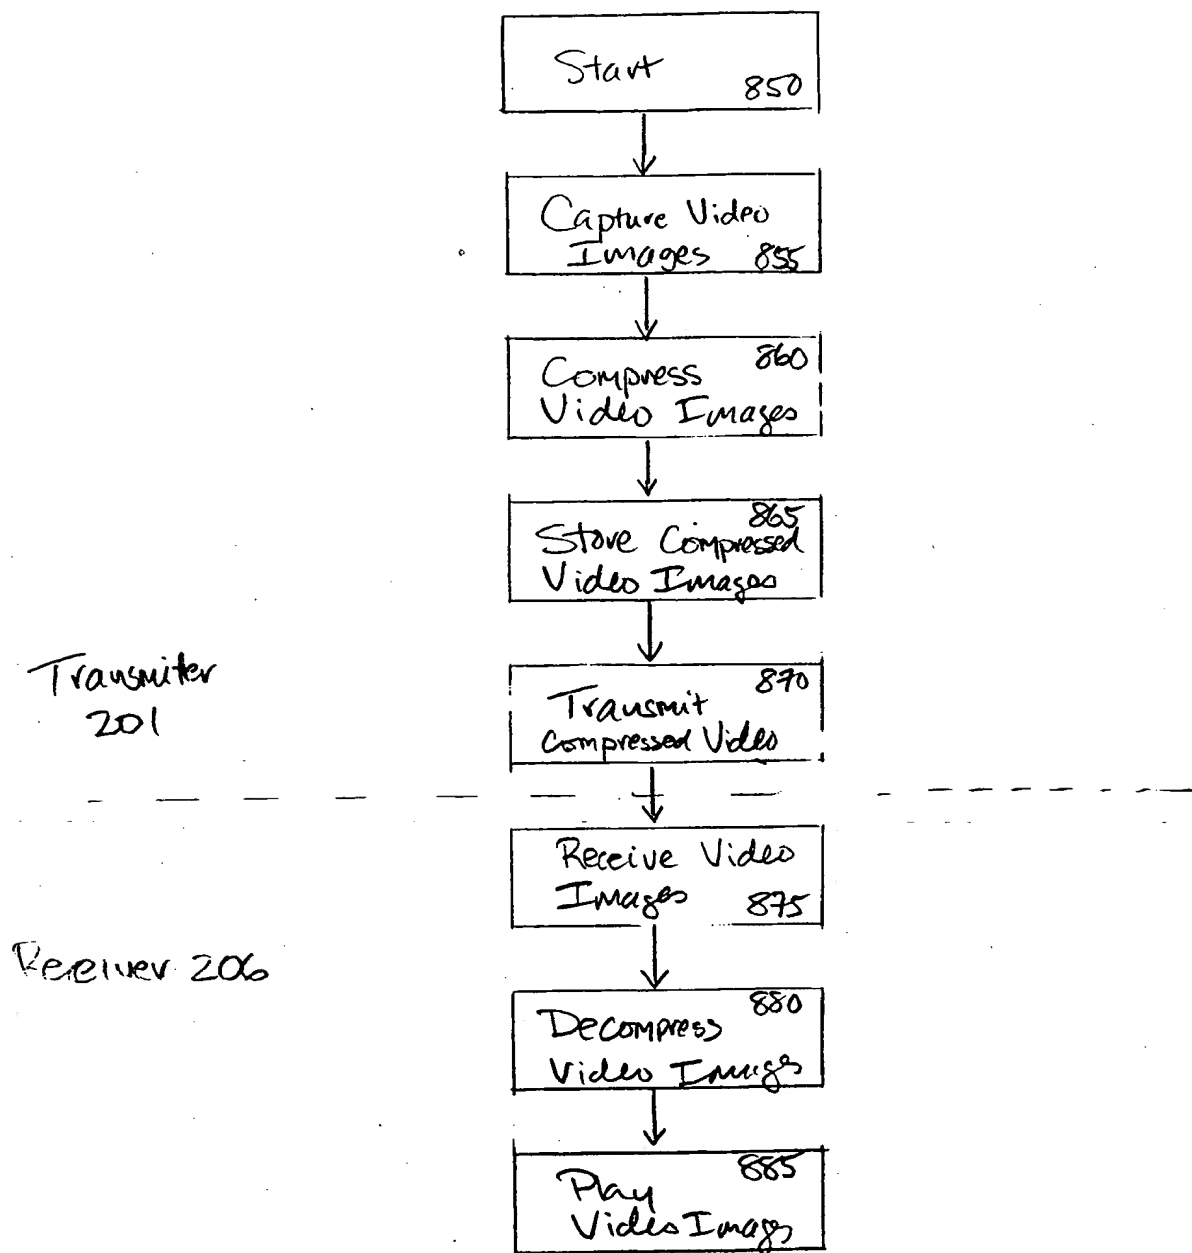 Start
850
Capture Video
Images 855
860
Compress
Video Images
865
Store Compressed
Video Images
Transmiter
201
870
Transmit
Compressed Video
Receive Video
Images 875
Receiver 206
880
Decompress
Video Images
885
Play
Video Images